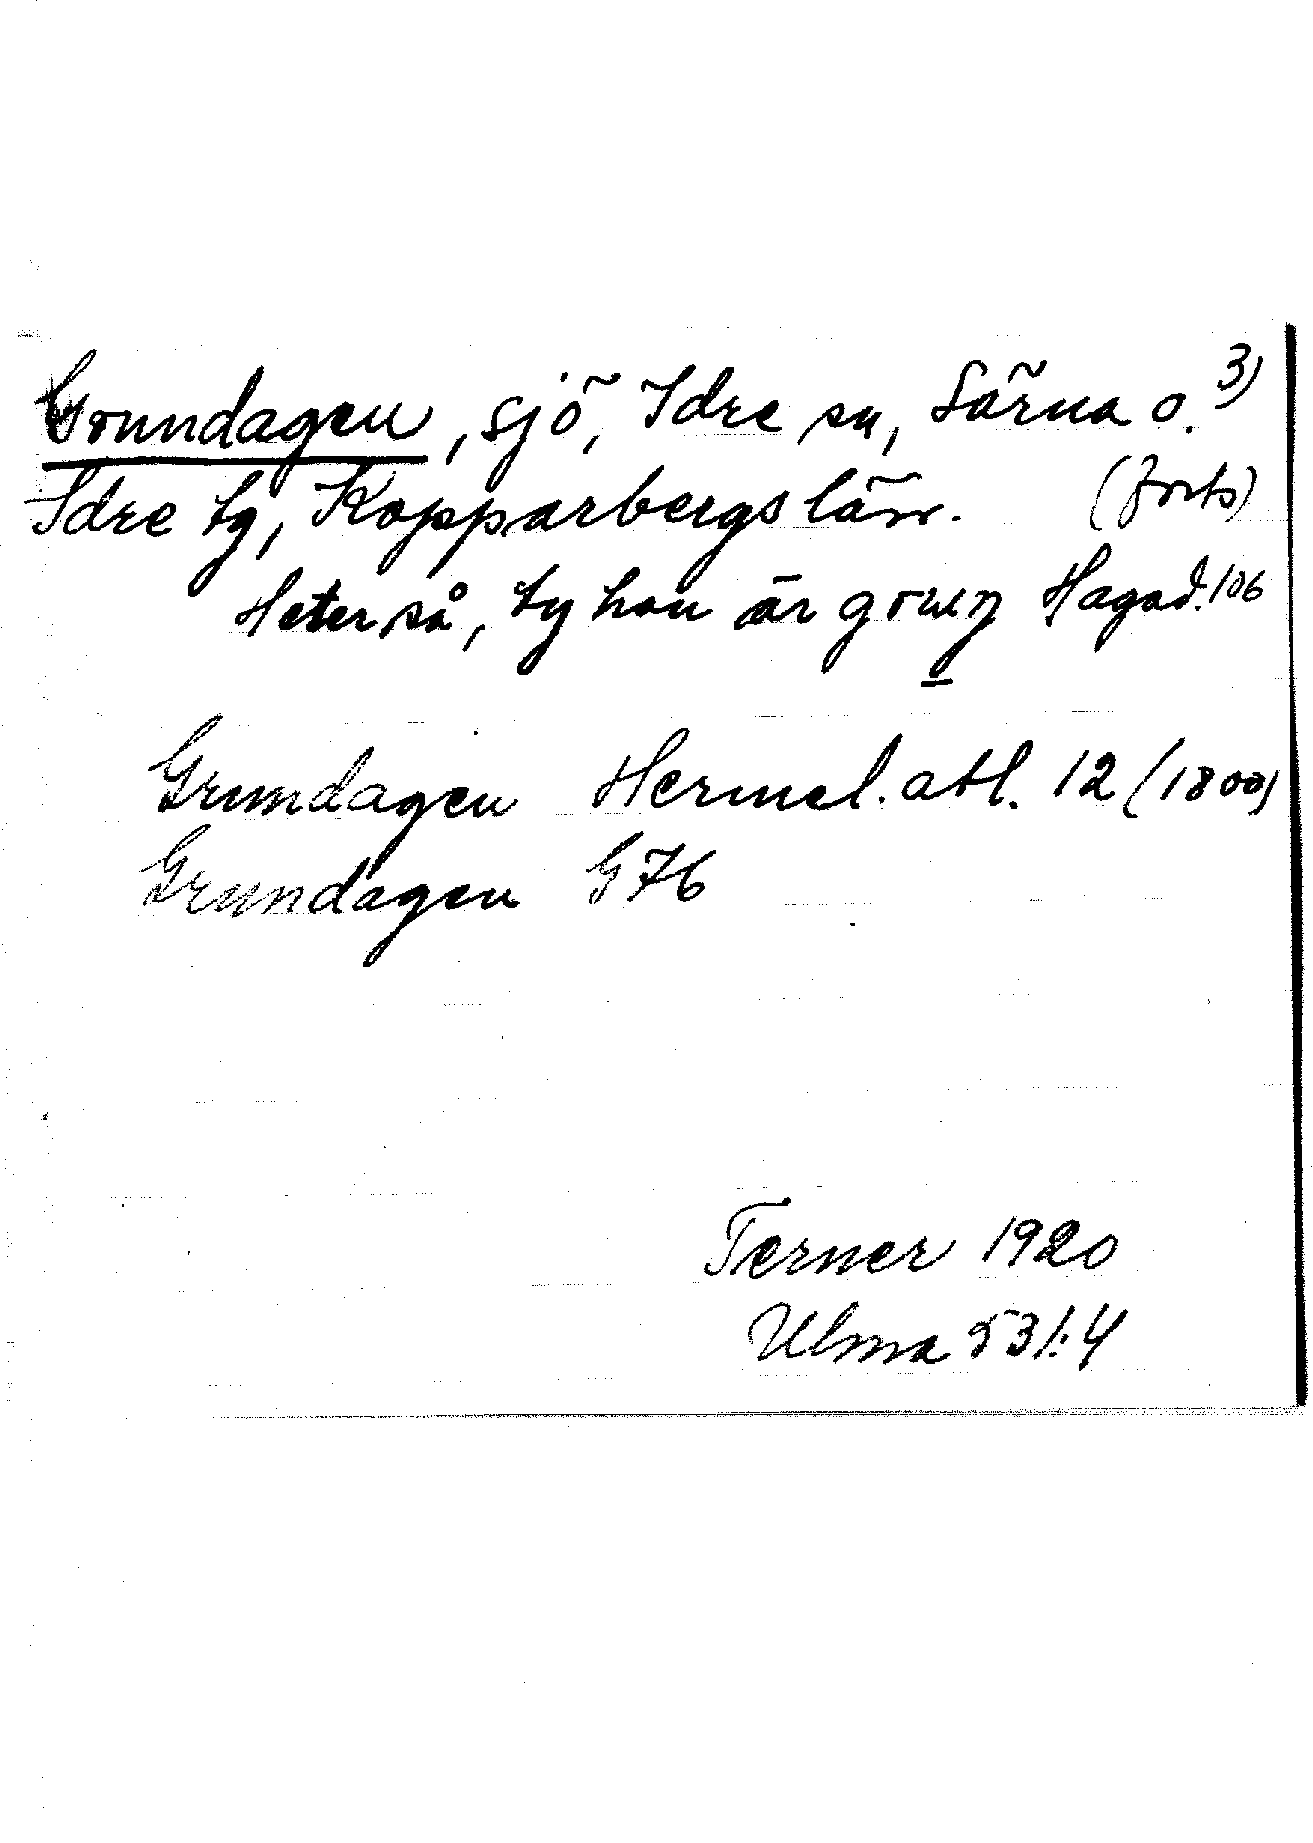 Grundagen, sjö, Idre sn, Särna o. 3)
Idre tg, Kopparbergs län. (forts)
Heter så, ty hon är Hagad. 106
Grundagen Hermel. atl. 12 (1800)
Grundagen G76
Terner 1920
Ulma 531:4